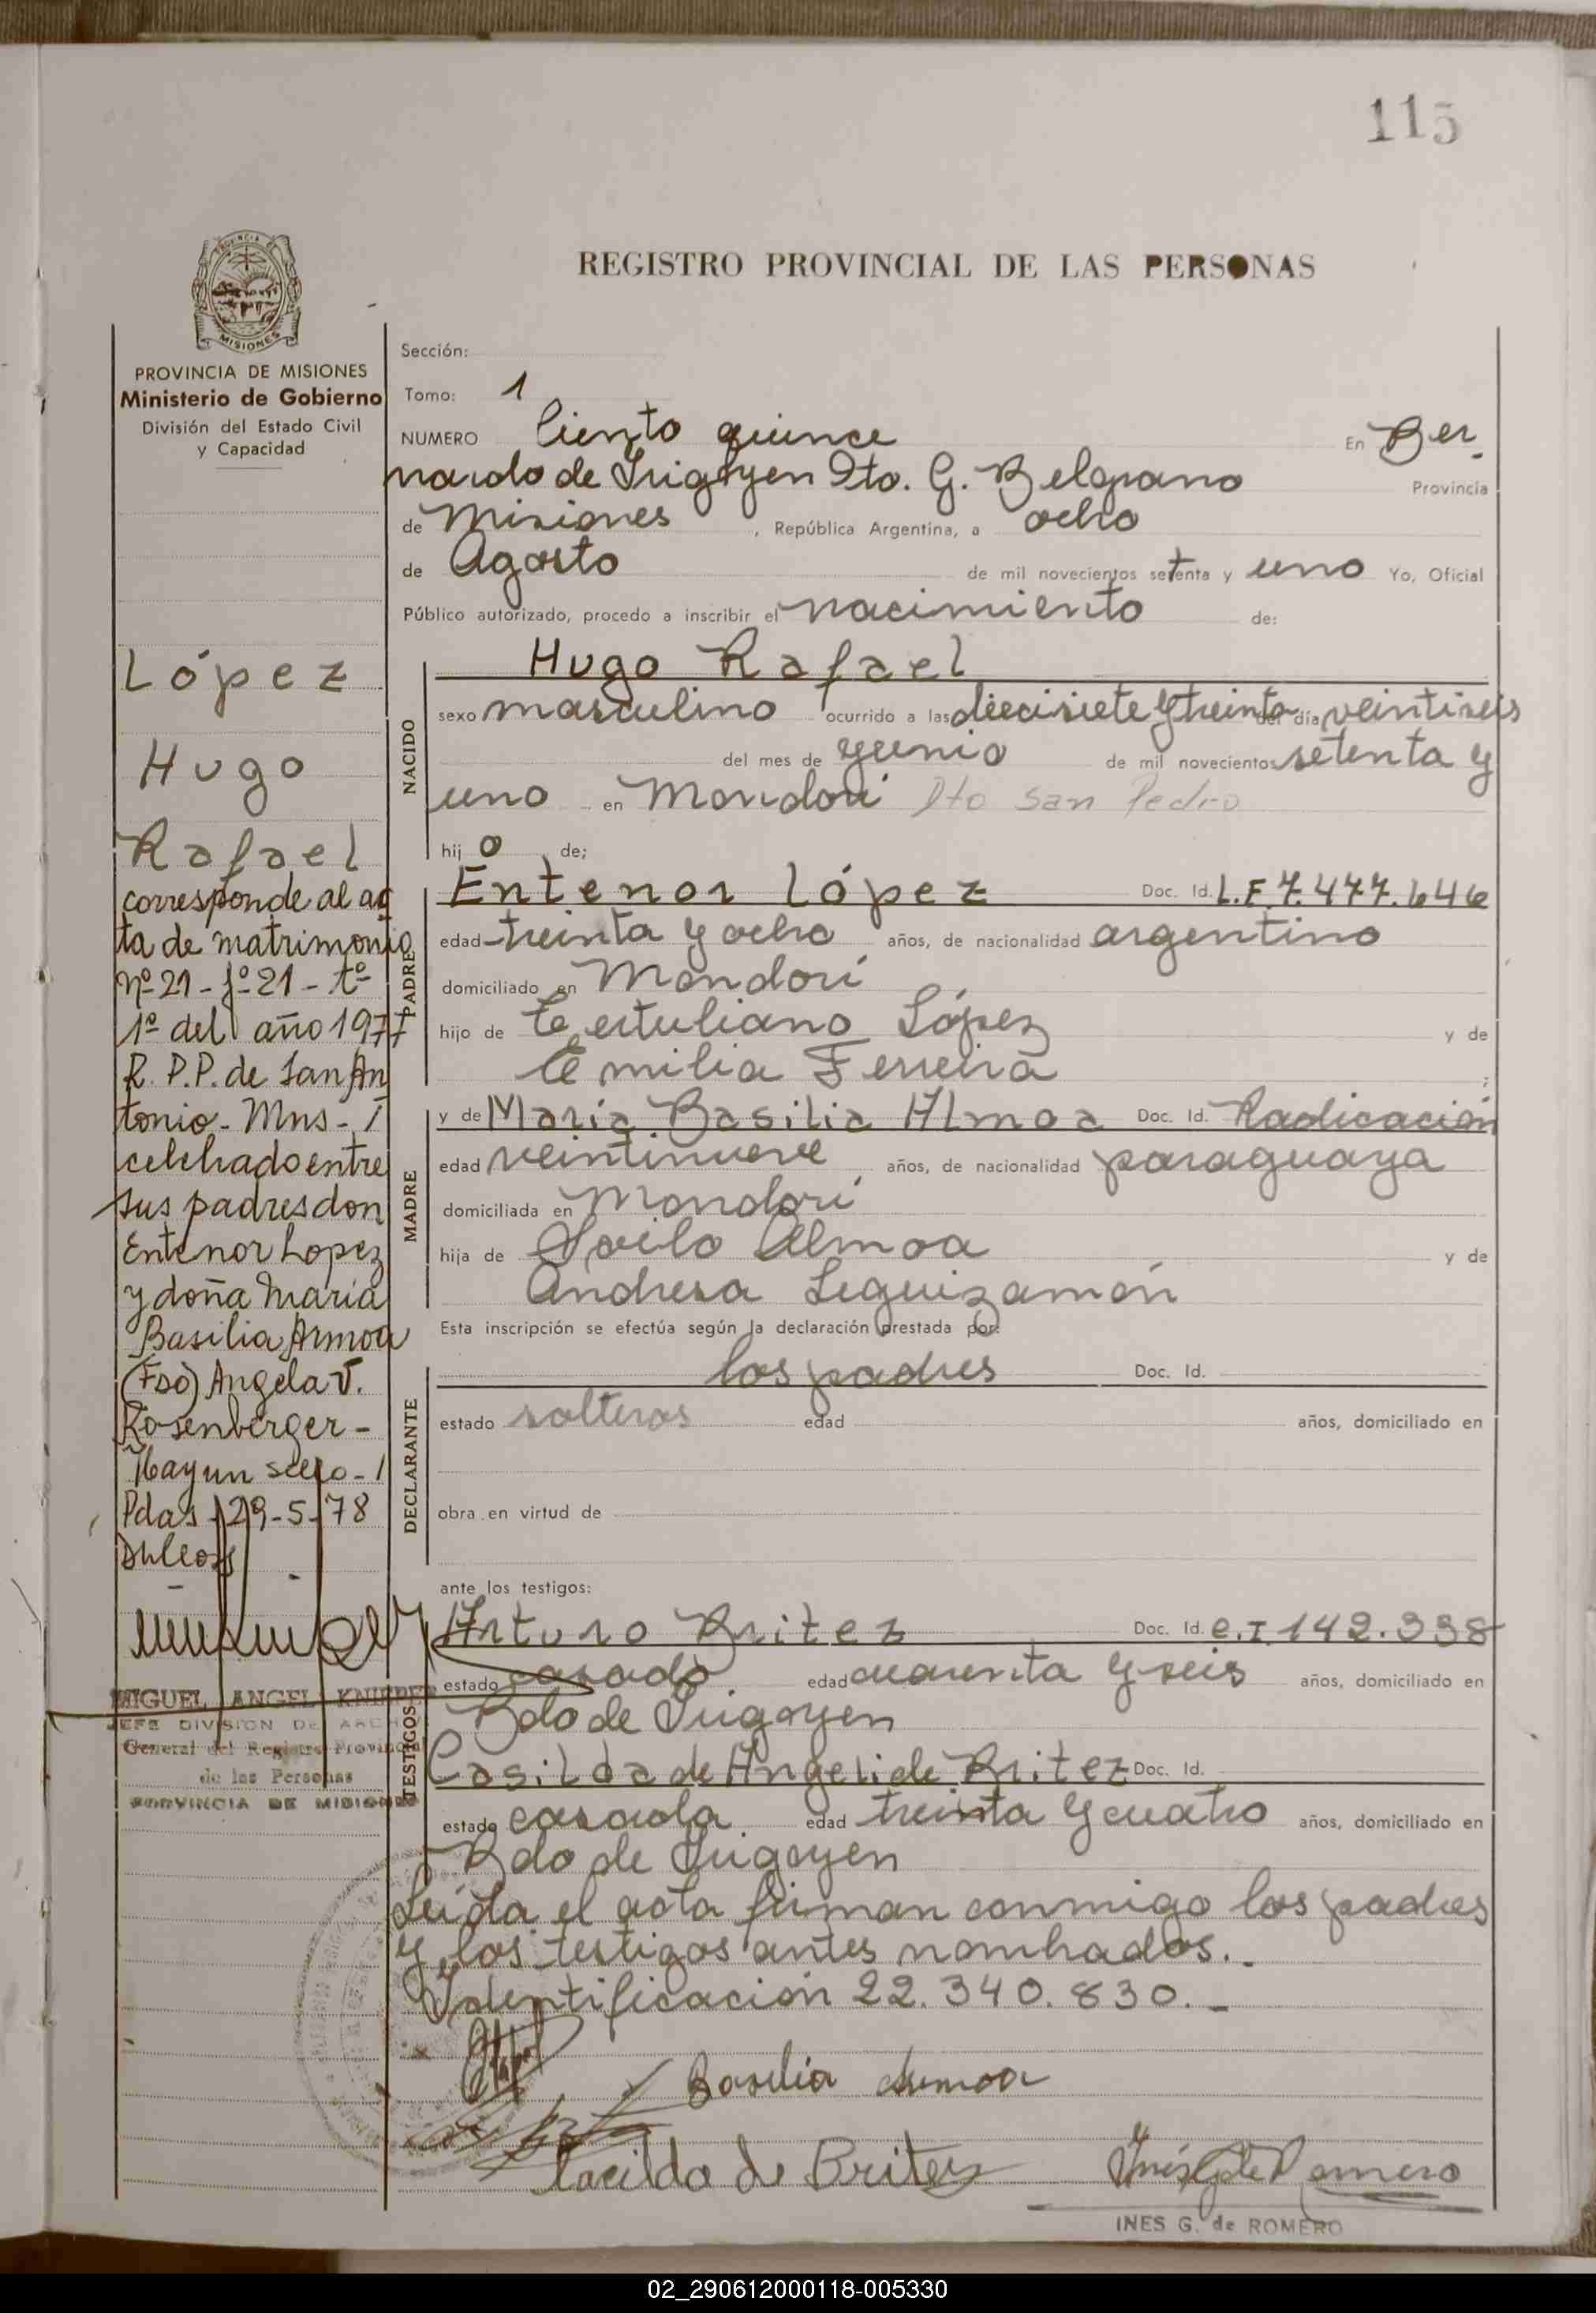 115
REGISTRO PROVINCIAL DE LAS PERSONAS
PROVINCIA DE MISIONES
Ministerio de Gobierno
División del Estado Civil
y Capacidad
López
Hugo
Rafael
corresponde al ac
ta de matrimonio
Nº 21 - fº 21 - tº
1º del año 1977
R. P.P. de San An
tonio - Mns -
celebrado entre
sus padres don
Entenor Lopez
y doña María
Basilia Armoa
(Fdo) Angela V.
Rosenberger -
Hay un sello -
Pdas 29-5-78
MIGUEL ANGEL
JEFE DIVISION DE ARCHIVO
General del Registro Provincial
de las Personas
PROVINCIA DE MISIONES
Sección:
Tomo: 1
NUMERO Ciento quince En Ber-
nardo de Irigoyen Dto. G. Belgrano Provincia
de Misiones, República Argentina, a ocho
de Agosto de mil novecientos setenta y uno Yo, Oficial
Público autorizado, procedo a inscribir el nacimiento de:
NACIDO
Hugo Rafael
sexo masculino ocurrido a las diecisiete y treinta del día veintiseis
del mes de junio de mil novecientos setenta y
uno en Mondorí Dto San Pedro
hijo de;
PADRE
Entenor López Doc. Id. L.E. 7.477.646
edad treinta y ocho años, de nacionalidad argentino
domiciliado en Mondorí
hijo de Tertuliano López y de
Emilia Ferreira ;
MADRE
y de María Basilia Almoa Doc. Id. Radicación
edad veintinueve años, de nacionalidad paraguaya
domiciliada en Mondorí
hija de Zoilo Almoa y de
Andresa Leguizamón
Esta inscripción se efectúa según la declaración prestada por:
DECLARANTE
los padres Doc. Id.
estado solteros edad años, domiciliado en
obra en virtud de
ante los testigos:
TESTIGOS
Arturo Britez Doc. Id. C.I. 142.338
estado casado edad cuarenta y seis años, domiciliado en
Bdo de Irigoyen
Casilda de Angeli de Britez Doc. Id.
estado casada edad treinta y cuatro años, domiciliado en
Bdo de Irigoyen
Leída el acta firman conmigo los padres
y los testigos antes nombrados.-
Identificación 22.340.830.-
Basilia Armoa
Cacilda de Britez
Inés G. de Romero
INES G. de ROMERO
02_290612000118-005330